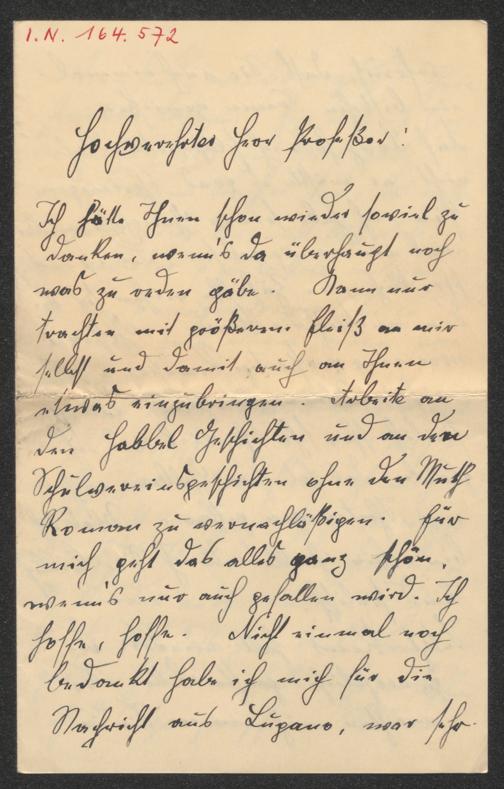 I.N. 164.572
Hochverehrter Herr Profeßor!
Ich hätte Ihnen schon wieder soviel zu
danken, wenn's da überhaupt noch
was zu reden gäbe. Kann nur
trachten mit größerem Fleiß an mir
selbst und damit auch an Ihnen
etwas einzubringen. Arbeite an
den Habbel Geschichten und an den
Schulvereinsgeschichten ohne den Muth
Roman zu vernachläßigen. Für
mich geht das alles ganz schön,
wenn's nur auch gefallen wird. Ich
hoffe, hoffe. Nicht einmal noch
bedankt habe ich mich für die
Nachricht aus Lugano, war sehr